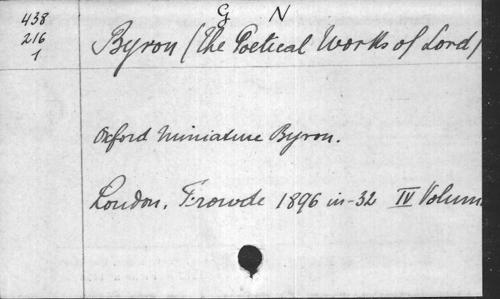 G N
438
216
1
Byron (The Poetical Works of Lord)
Oxford Miniature Byron.
London, Frowde 1896 in-32 IV Volum